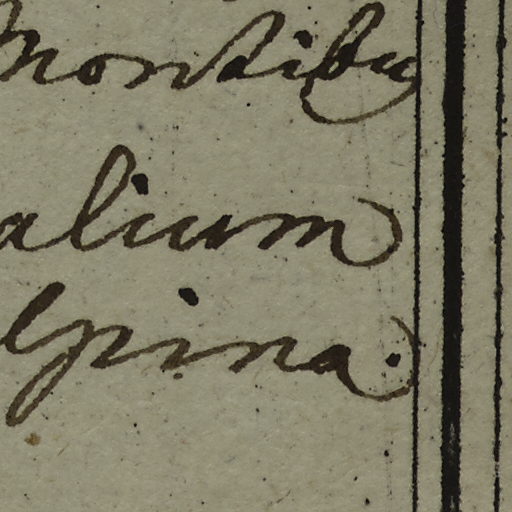 Montibu
alium
lpina.